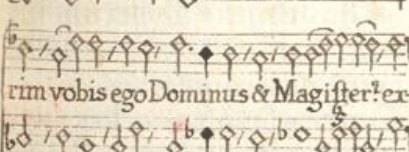 rim vobis ego Dominus & Magister: ex-